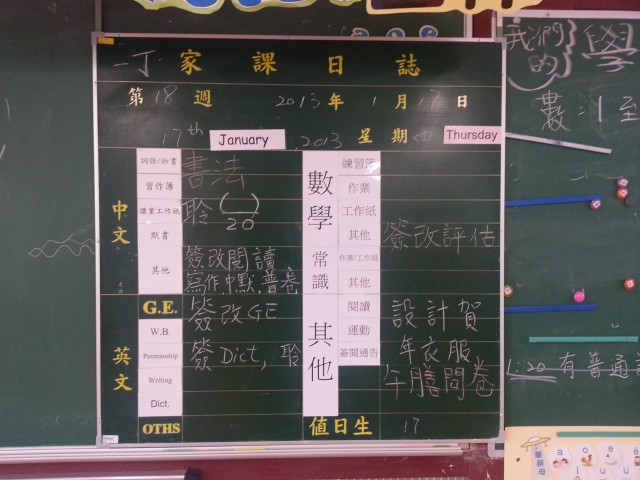 一丁 家課日誌
第 18 週 2013年 1月 17日
17th January 2013 星期四 Thursday
中文
詞語/抄書 書法
習作簿
課業工作紙 聆 ( )/20
默書
其他 簽改閱讀
寫作中默 普卷
英文
G.E. 簽改GE
W.B.
Penmanship 簽Dict, 聆
Writing
Dict.
OTHS
數學
練習簿
作業
工作紙
其他 簽改評估
常識
作業/工作紙
其他
其他
閱讀 設計賀
運動 年衣服
簽閱通告 午膳問卷
值日生 17
我們的
學
數
至
1:20 有普通
a o e
i u